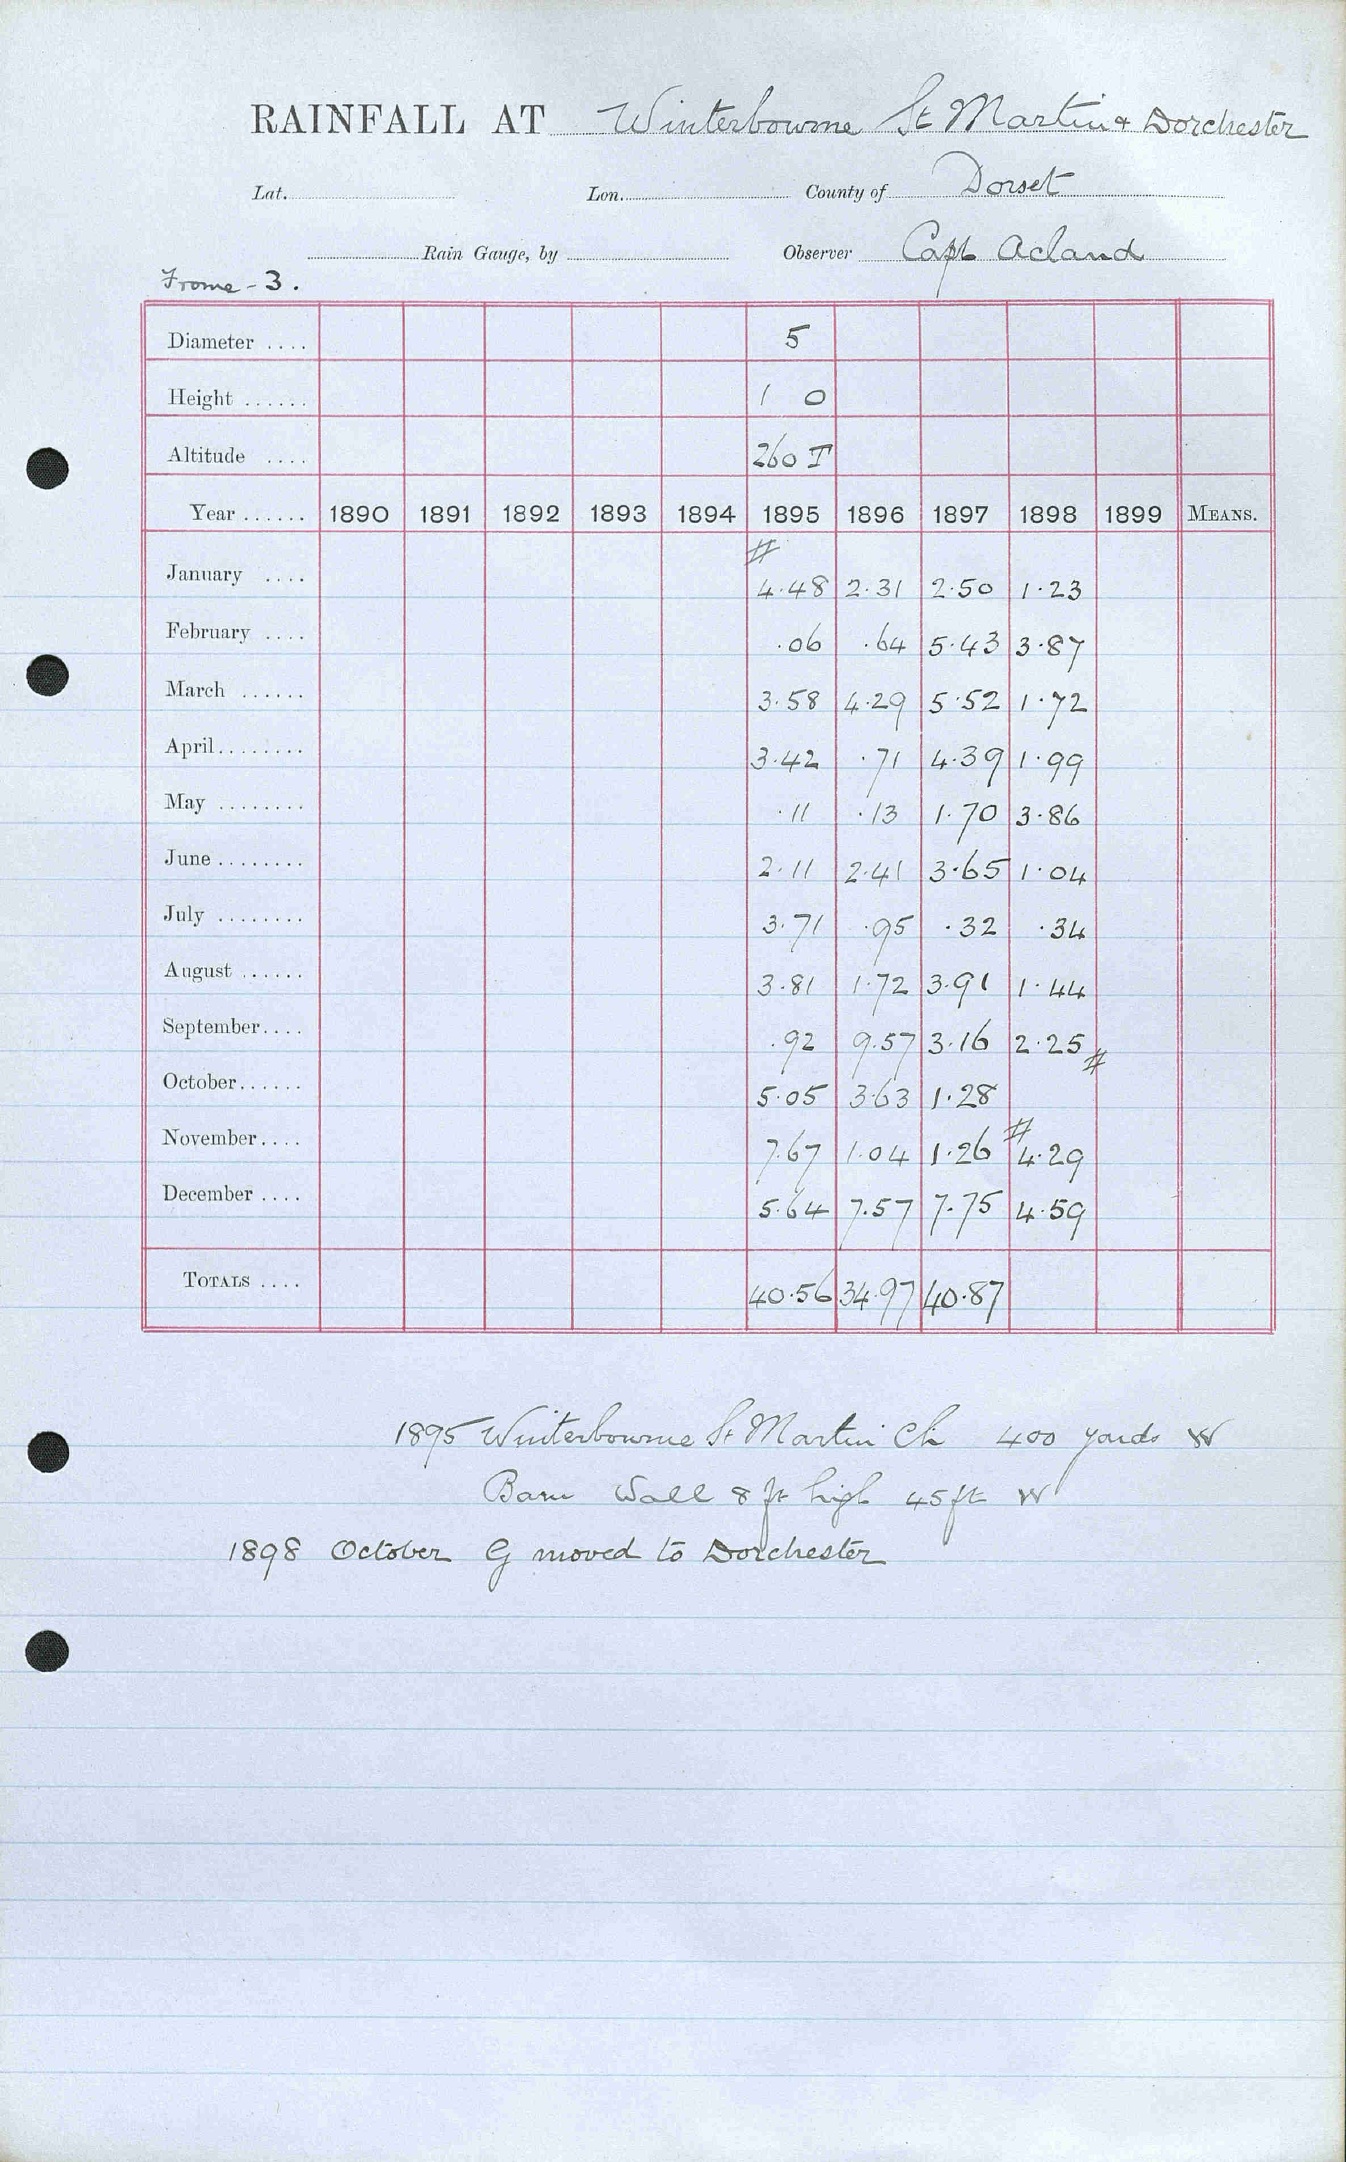 RAINFALL AT Winterbourne St Martin & Dorchester
Lat. Lon. County of Dorset
Rain Gauge, by Observer Capt Acland
Frome - 3.
Diameter .... 5
Height ...... 1 0
Altitude .... 260 T
Year ...... 1890 1891 1892 1893 1894 1895 1896 1897 1898 1899 MEANS.
#
January .... 4.48 2.31 2.50 1.23
February .... .06 .64 5.43 3.87
March ...... 3.58 4.29 5.52 1.72
April ........ 3.42 .71 4.39 1.99
May ........ .11 .13 1.70 3.86
June ........ 2.11 2.41 3.65 1.04
July ........ 3.71 .95 .32 .34
August ...... 3.81 1.72 3.91 1.44
September .... .92 9.57 3.16 2.25 #
October ...... 5.05 3.63 1.28
November .... 7.67 1.04 1.26 # 4.29
December .... 5.64 7.57 7.75 4.59
TOTALS .... 40.56 34.97 40.87
1895 Winterbourne St Martin Ch 400 yards W
Barn Wall 8 ft high 45 ft W
1898 October G moved to Dorchester